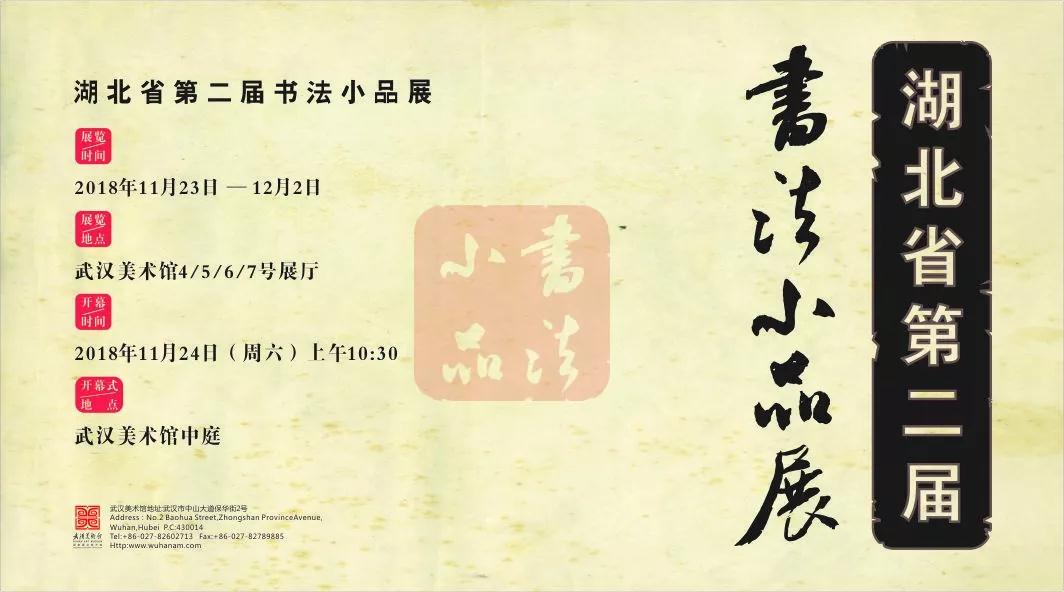 湖北省第二届
書法小品展
書法
小品
湖北省第二届书法小品展
展览
时间
2018年11月23日 — 12月2日
展览
地点
武汉美术馆4/5/6/7号展厅
开幕
时间
2018年11月24日（周六）上午10:30
开幕式
地 点
武汉美术馆中庭
武汉美术馆地址:武汉市中山大道保华街2号
Address : No.2 Baohua Street,Zhongshan ProvinceAvenue,
Wuhan,Hubei P.C:430014
Tel:+86-027-82602713 Fax:+86-027-82789885
Http:www.wuhanam.com
武漢美術館